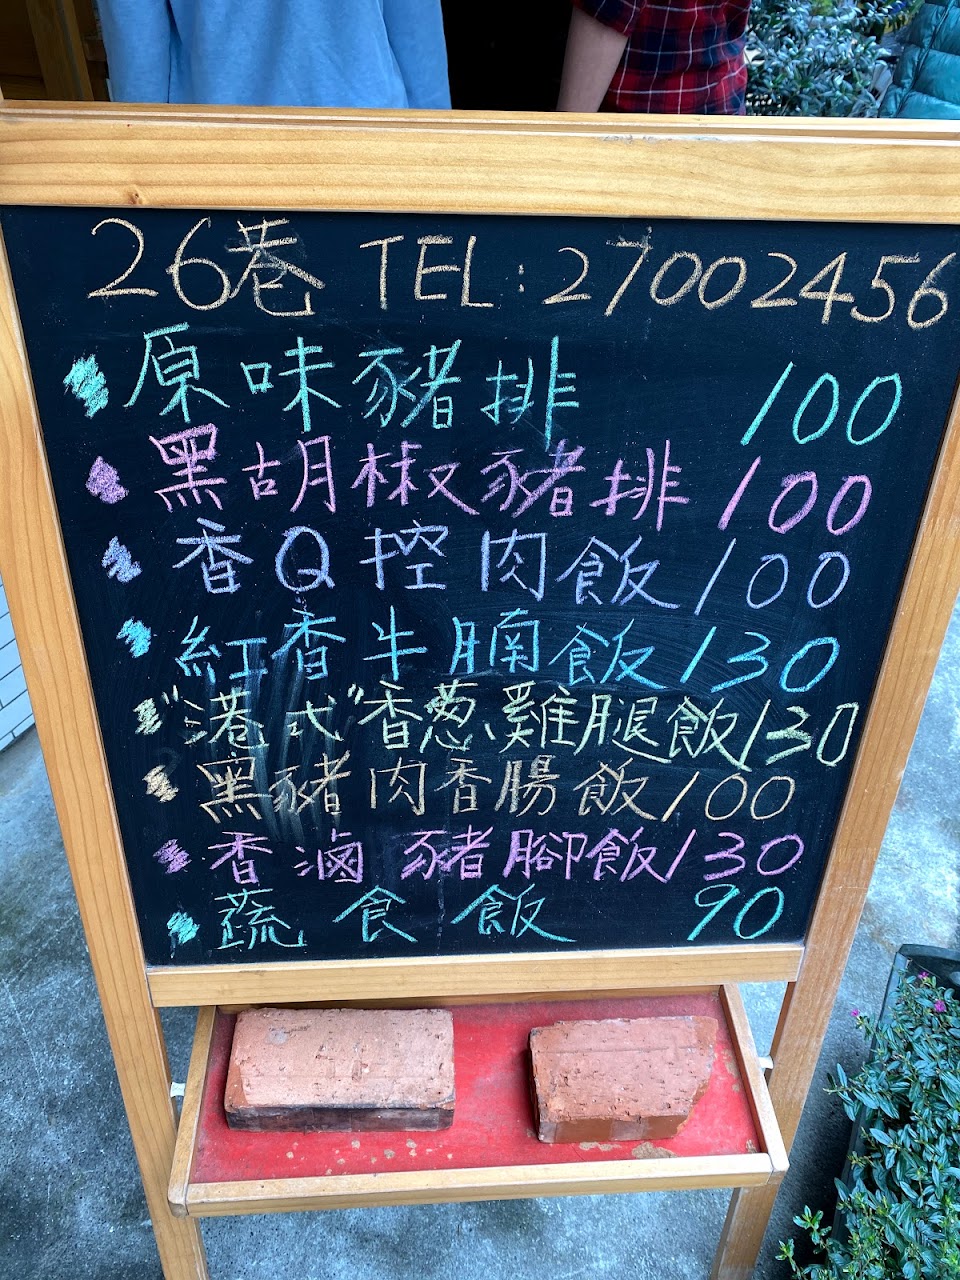 26巷 TEL:27002456
原味豬排 100
黑胡椒豬排 100
香Q控肉飯 100
紅香牛腩飯 130
"港式"香蔥雞腿飯 130
黑豬肉香腸飯 100
香滷豬腳飯 130
蔬食飯 90